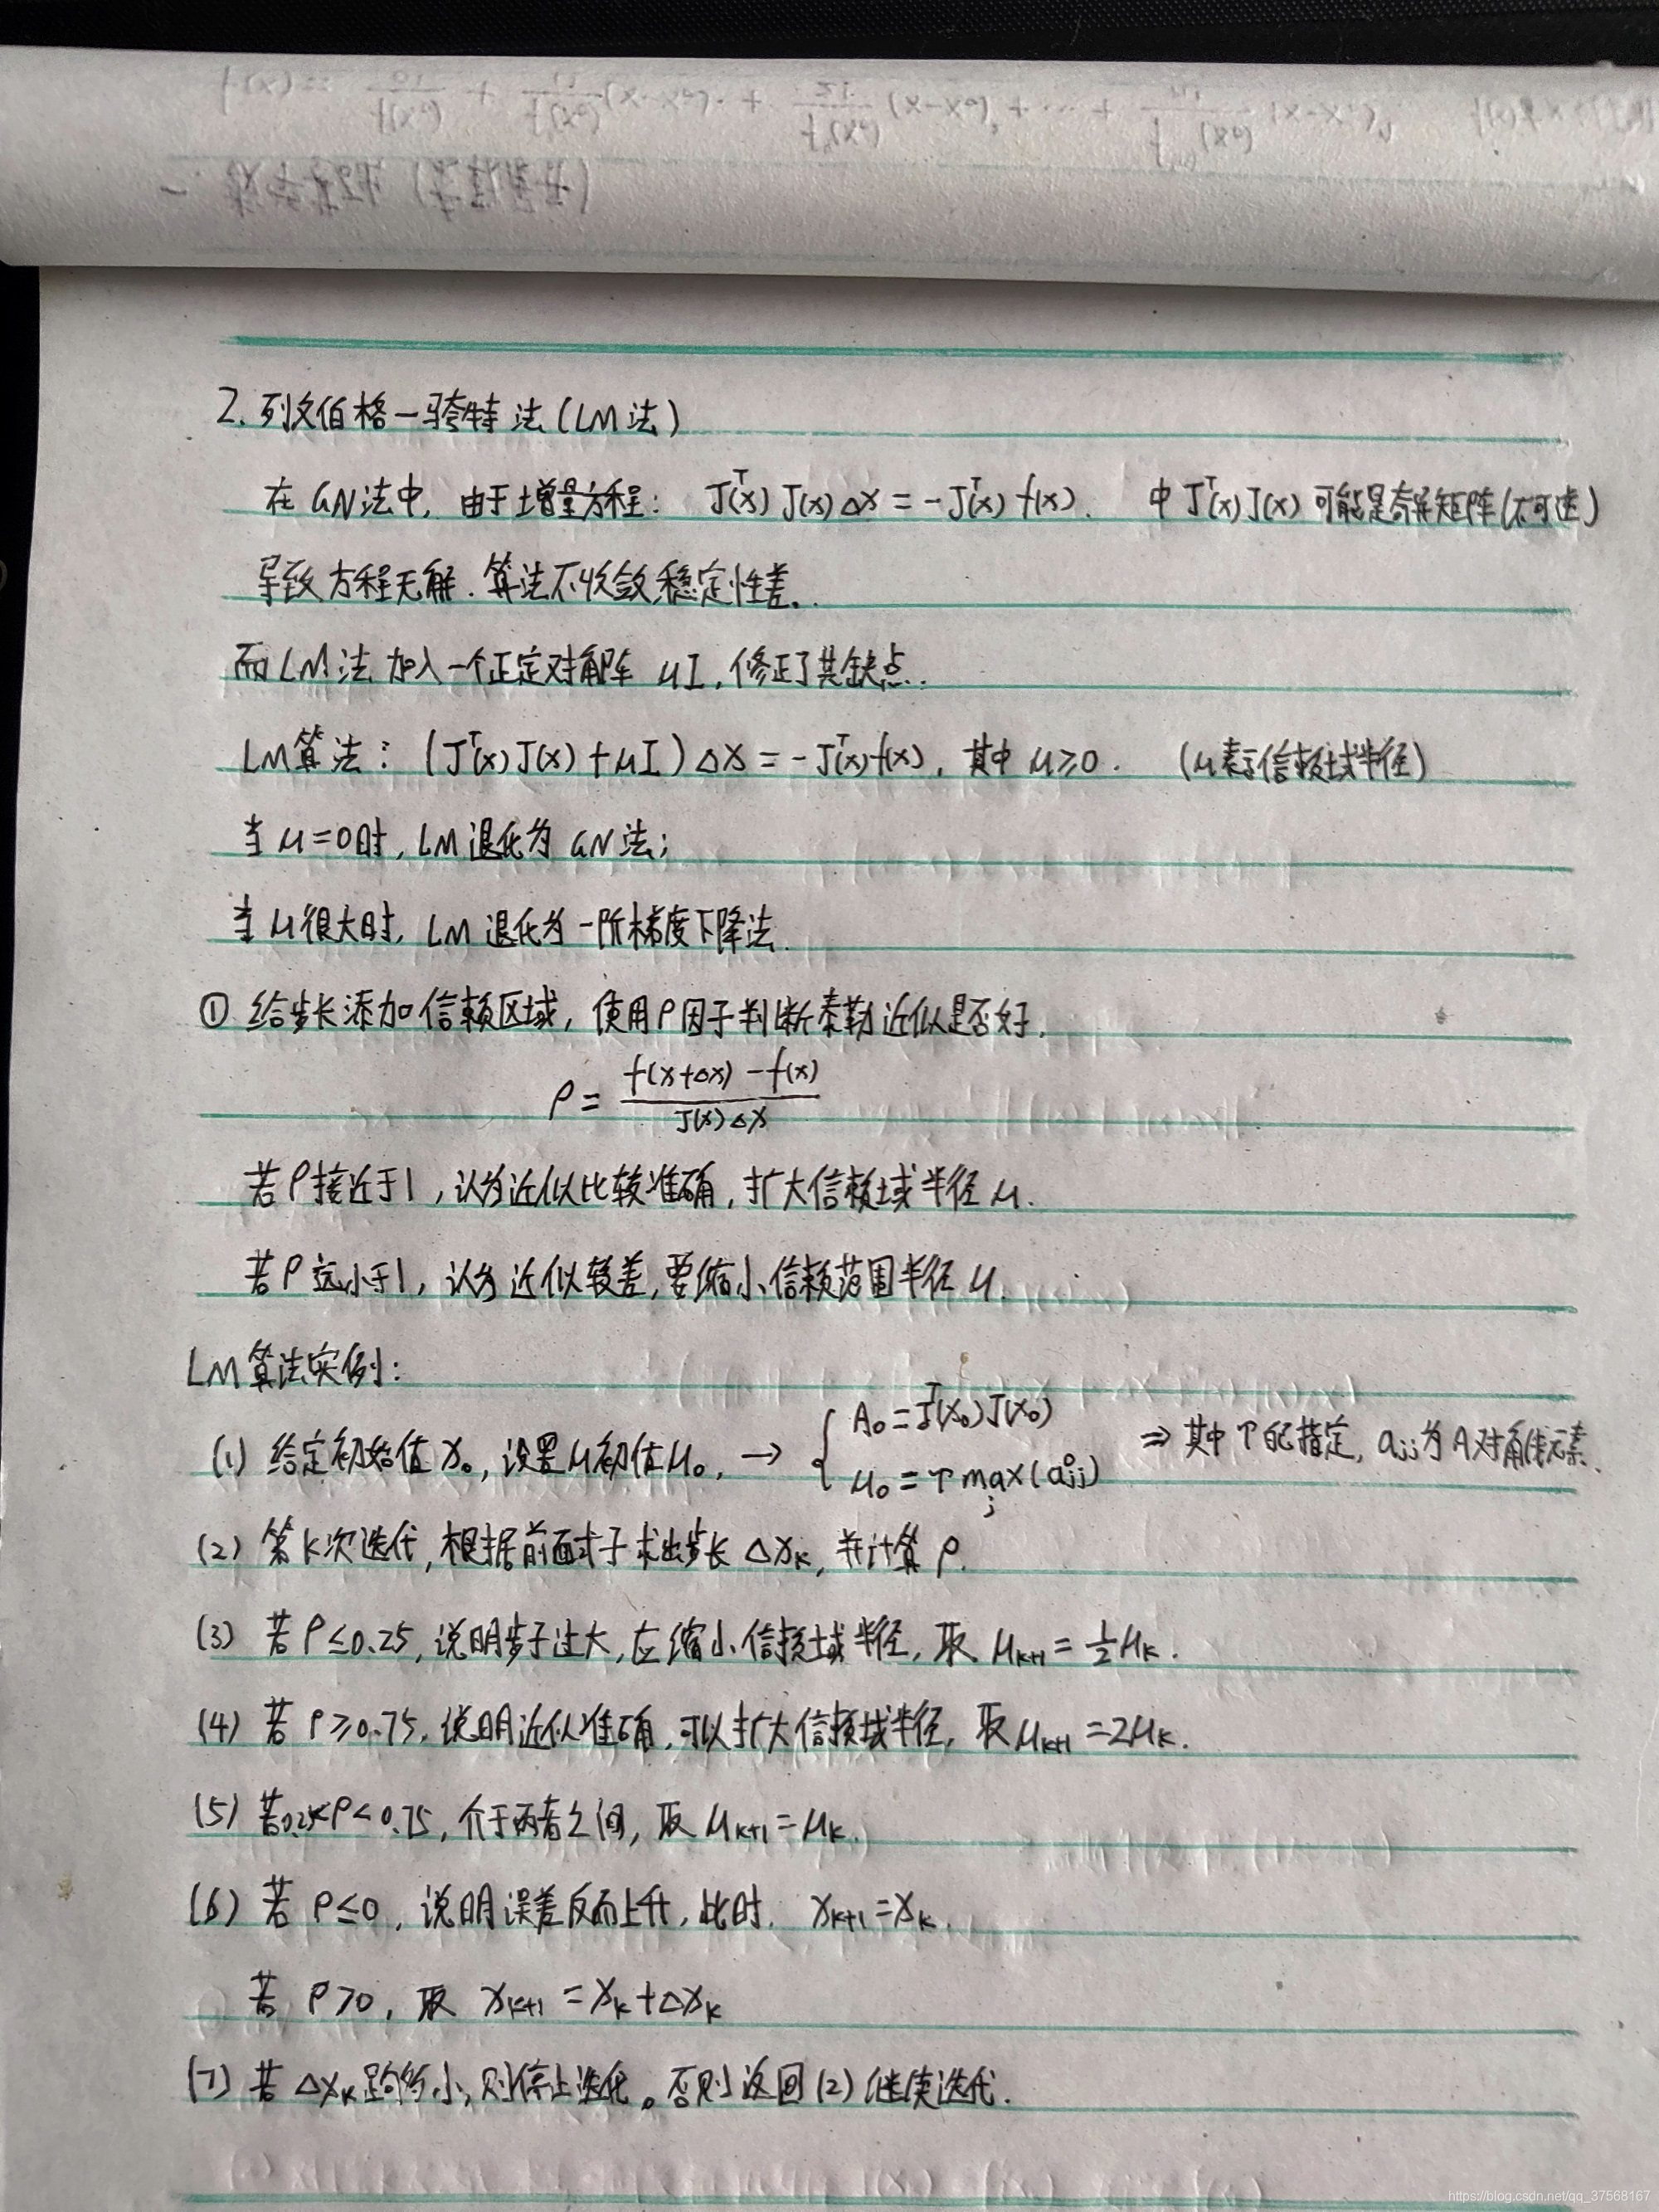 2. 列文伯格—骑特法(LM法)
在GN法中, 由于增量方程: Jᵀ(x) J(x) Δx = -Jᵀ(x) f(x). 中 Jᵀ(x) J(x) 可能是奇异矩阵(不可逆)
导致方程无解. 算法不收敛, 稳定性差.
而LM法加入一个正定对角阵 μI, 修正了其缺点.
LM算法: (Jᵀ(x) J(x) + μI) Δx = -Jᵀ(x) f(x), 其中 μ≥0. (μ表示信赖域半径)
当 μ=0时, LM 退化为 GN 法;
当 μ很大时, LM 退化为一阶梯度下降法.
① 给步长添加信赖区域, 使用ρ因子判断泰勒近似是否好.
ρ = (f(x+Δx) - f(x)) / (J(x) Δx)
若ρ接近于1, 认为近似比较准确, 扩大信赖域半径 μ.
若ρ远小于1, 认为近似较差, 要缩小信赖范围半径 μ.
LM算法实例:
(1) 给定初始值 x₀, 设置μ初值 μ₀, → { A₀ = Jᵀ(x₀) J(x₀)
μ₀ = τ max_j (a⁰jj) ⇒ 其中 τ 自己指定, ajj为A对角线元素.
(2) 第K次迭代, 根据前面式子求出步长 Δxₖ, 并计算 ρ.
(3) 若 ρ≤0.25, 说明步子过大, 应缩小信赖域半径, 取 μₖ₊₁ = ½μₖ.
(4) 若 ρ≥0.75, 说明近似准确, 可以扩大信赖域半径, 取 μₖ₊₁ = 2μₖ.
(5) 若0.25<ρ<0.75, 介于两者之间, 取 μₖ₊₁ = μₖ.
(6) 若 ρ≤0, 说明误差反而上升, 此时. xₖ₊₁ = xₖ.
若 ρ>0, 取 xₖ₊₁ = xₖ + Δxₖ
(7) 若 Δxₖ 足够小, 则停止迭代。否则返回(2)继续迭代.
https://blog.csdn.net/qq_37568167